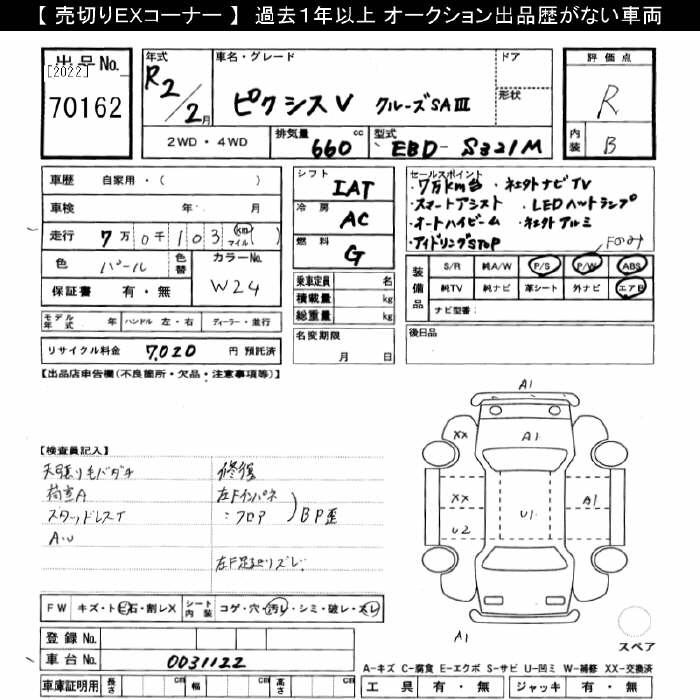 【 売切りEXコーナー 】 過去1年以上 オークション出品歴がない車両
出品No.
[2022]
70162
年式
R2/2月
車名・グレード
ピクシスV クルーズSAⅢ
ドア
形状
評価点
R
内装 B
2WD・4WD
排気量 660 cc
型式 EBD-S321M
車歴 自家用・( )
車検 年 月
走行 7万0千103 km マイル ( )
色 パール
色替
カラーNo. W24
保証書 有・無
モデル年式 年 ハンドル 左・右 ディーラー・並行
リサイクル料金 7,020 円 預託済
シフト IAT
冷房 AC
燃料 G
乗車定員 名
積載量 kg
総重量 kg
名変期限 月 日
セールスポイント
・7万km台 ・ネクストナビTV
・スマートアシスト ・LEDヘッドランプ
・オートハイビーム ・ネクストアルミ
・アイドリングSTOP
Fのみ
装備品
S/R 純A/W P/S P/W ABS
純TV 純ナビ 革シート 外ナビ エアB
ナビ型番:
後日品
【出品店申告欄(不良箇所・欠品・注意事項等)】
【検査員記入】
天張り毛バダチ 修復
荷室A 左Fインパネ
スタッドレスT :フロア )BP歪
A・U
左F足廻りズレ
FW キズ・トビ石・割レX
シート内装 コゲ・穴・汚レ・シミ・破レ・スレ
登録No.
車台No. 0031122
車庫証明用 長さ cm 幅 cm 高さ cm
A1
XX
A1
XX
U2
U1
A1
A1
スペア
A-キズ C-腐食 E-エクボ S-サビ U-凹ミ W-補修 XX-交換済
工具 有・無 ジャッキ 有・無